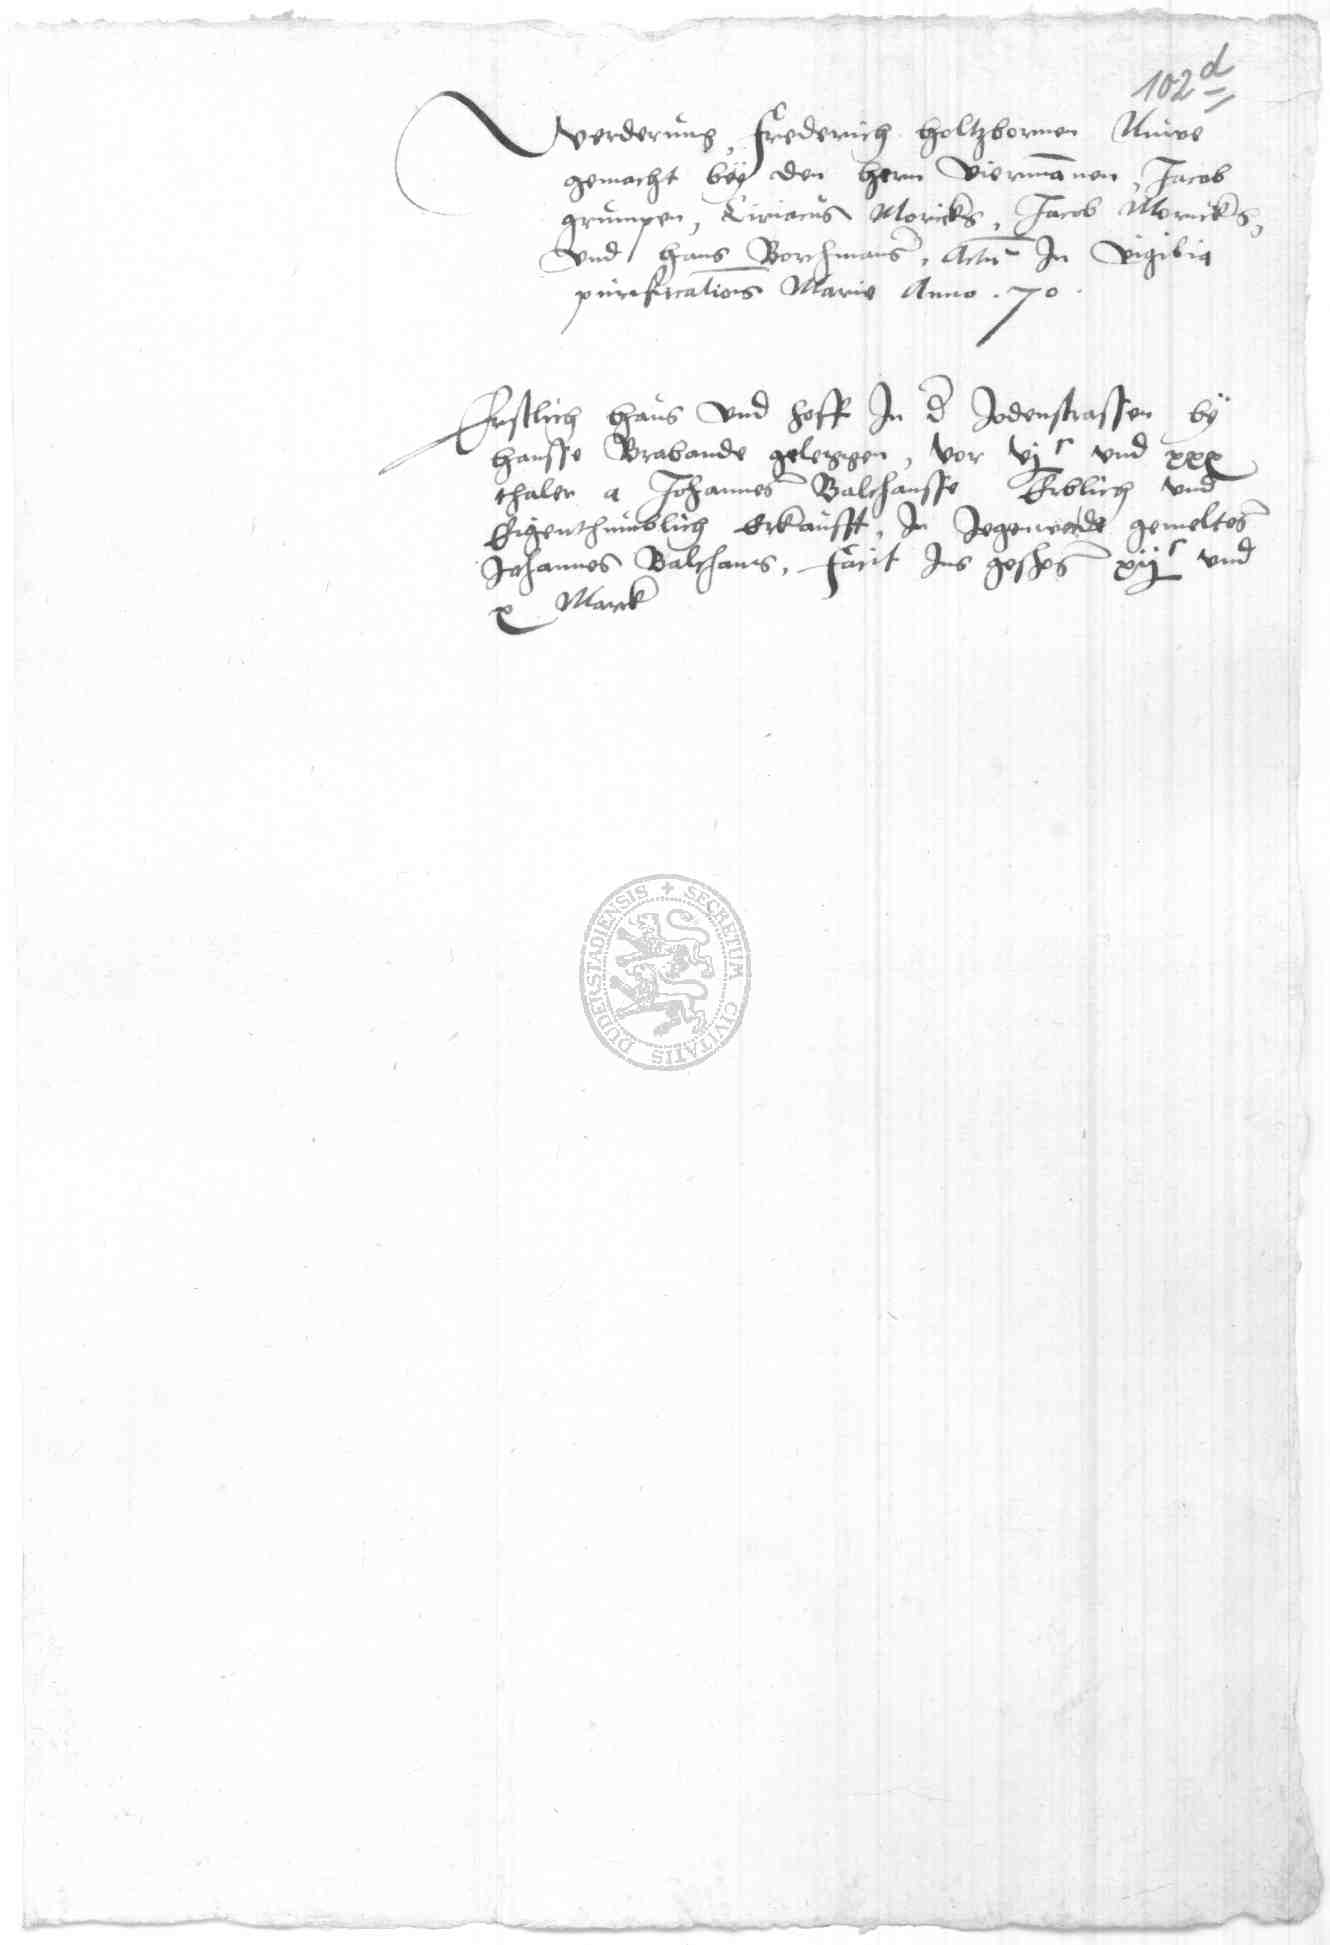 102 d
Werderung, Frederich Holtzbornen Nuwe
gemacht bey den hern Viermannen, Jacob
Grumpen, Ciriacus Moricks, Jacob Moricks,
Vnd Hans Borchmans, Actu In Vigilia
purificationis Marie Anno . 70 .
Erstlich Haus Vnd Hoff In d Jodenstrassen by
Hansse Brabande gelegen, vor vjc vnd xxx
thaler a Johannes Balchansse Erblich vnd
Eigenthumblich Erkaufft, In Jegenwerde gemeltes
Johannes Balchans, facit Ins xijc vnd
x Marck
SECRETUM CIVITATIS DUDERSTADIENSIS